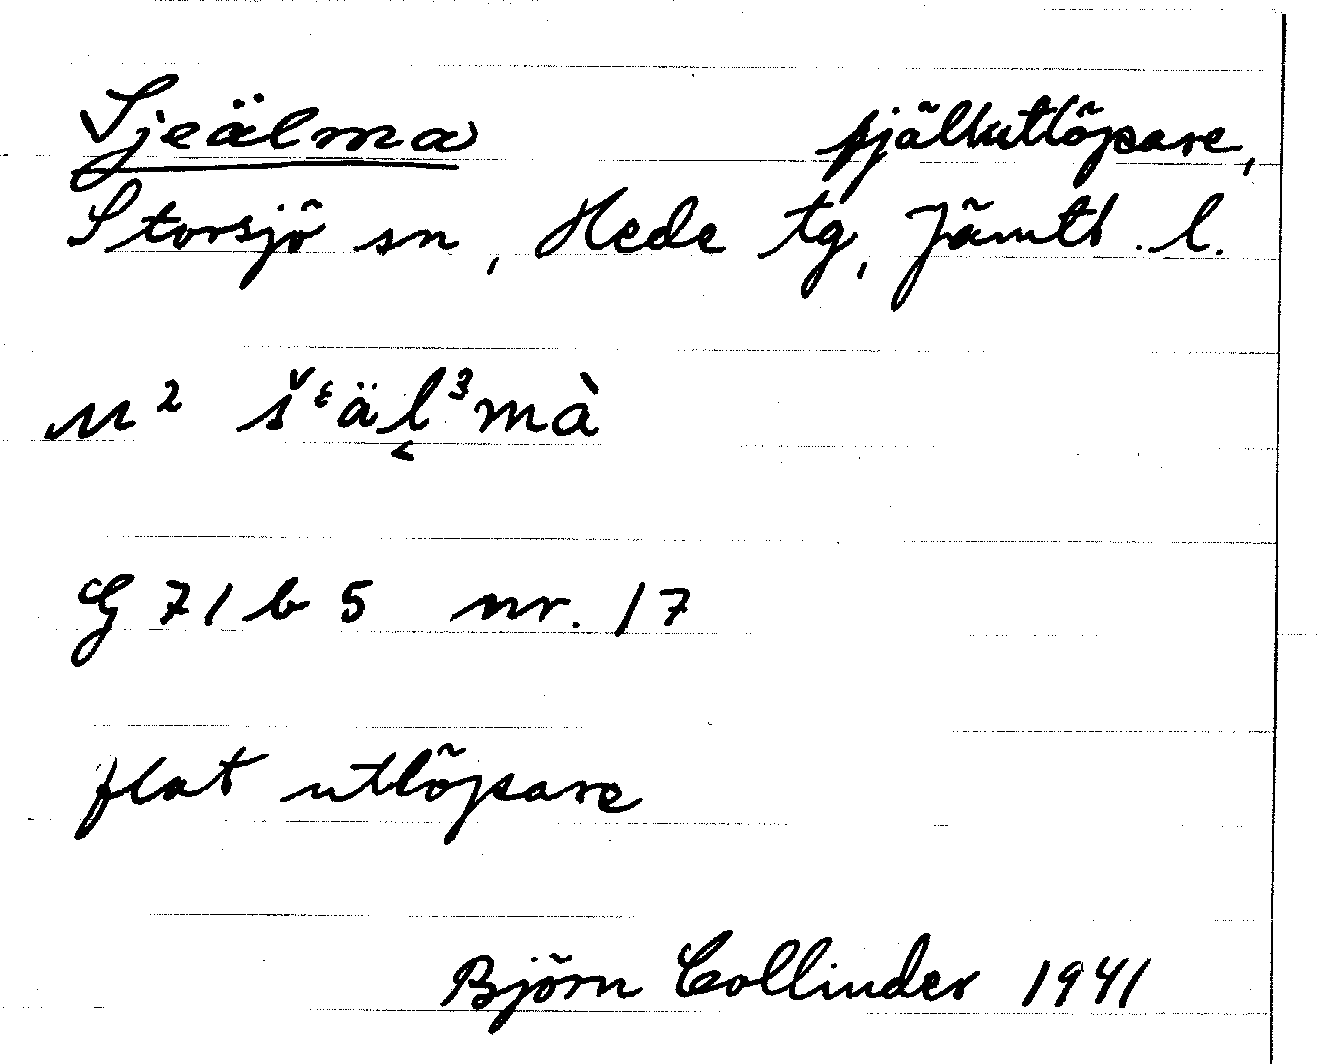 Sjeälma fjällutlöpare,
Storsjö sn, Hede tg, Jämtl. l.
n² šᵋäl̬³mà
G 71 b 5 nr. 17
flat utlöpare
Björn Collinder 1941